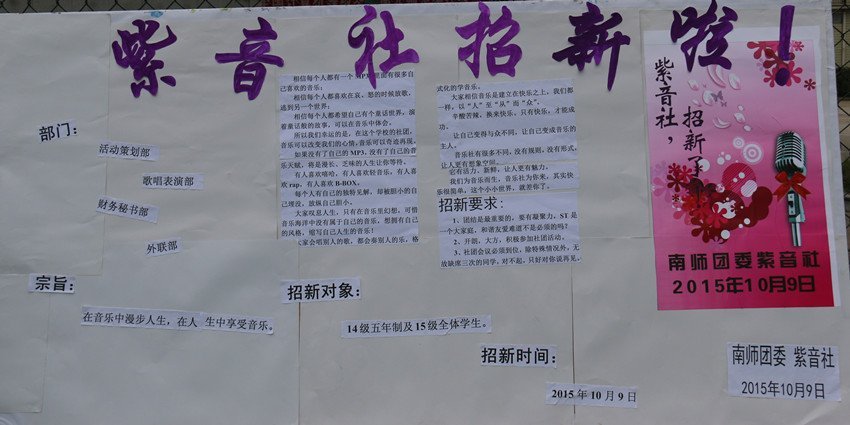 紫音社招新啦!
部门:
活动策划部
歌唱表演部
财务秘书部
外联部
宗旨:
在音乐中漫步人生,在人 生中享受音乐。
相信每个人都有一个MP3,里面有很多自
己喜欢的音乐;
相信每个人都喜欢在哀、怒的时候放歌,
逃到另一个世界;
相信每个人都希望自己有个童话世界,演
着童话般的故事,可以在音乐中体会。
所以我们幸运的是,在这个学校的社团,
音乐可以改变我们的心情,音乐可以奇迹再现。
如果没有了自己的MP3,没有了自己的音
乐天赋,将是漫长、乏味的人生让你等待。
有人喜欢嘻哈,有人喜欢轻音乐,有人喜
欢rap,有人喜欢B-BOX。
每个人有自己的独特见解,却被胆小的自
己埋没,放纵自己胆小。
大家叹息人生,只有在音乐里幻想,可惜
音乐海洋中没有属于自己的音乐,想拥有自己
的风格,缩写自己人生的音乐!
大家会唱别人的歌,都会奏别人的乐,格
式化的学音乐。
大家相信音乐是建立在快乐之上,我们都
一样,以“人”至“从”而“众”。
辛酸苦辣,换来快乐,只有快乐,才能成
功。
让自己变得与众不同,让自己变成音乐的
主人。
音乐社有很多不同,没有规则,没有形式,
让人更有想象空间。
它有活力、新鲜,让人更有魅力。
我们为音乐而生,音乐社为你来,其实快
乐很简单,这个小小世界,就差你了。
招新要求:
1、团结是最重要的,要有凝聚力,ST是
一个大家庭,和谐友爱难道不是必须的吗?
2、开朗、大方,积极参加社团活动。
3、社团会议必须到位,除特殊情况外,无
故缺席三次的同学,对不起,只好对你说再见。
招新对象:
14级五年制及15级全体学生。
招新时间:
2015年10月9日
紫音社,
招新了
南师团委紫音社
2015年10月9日
南师团委 紫音社
2015年10月9日